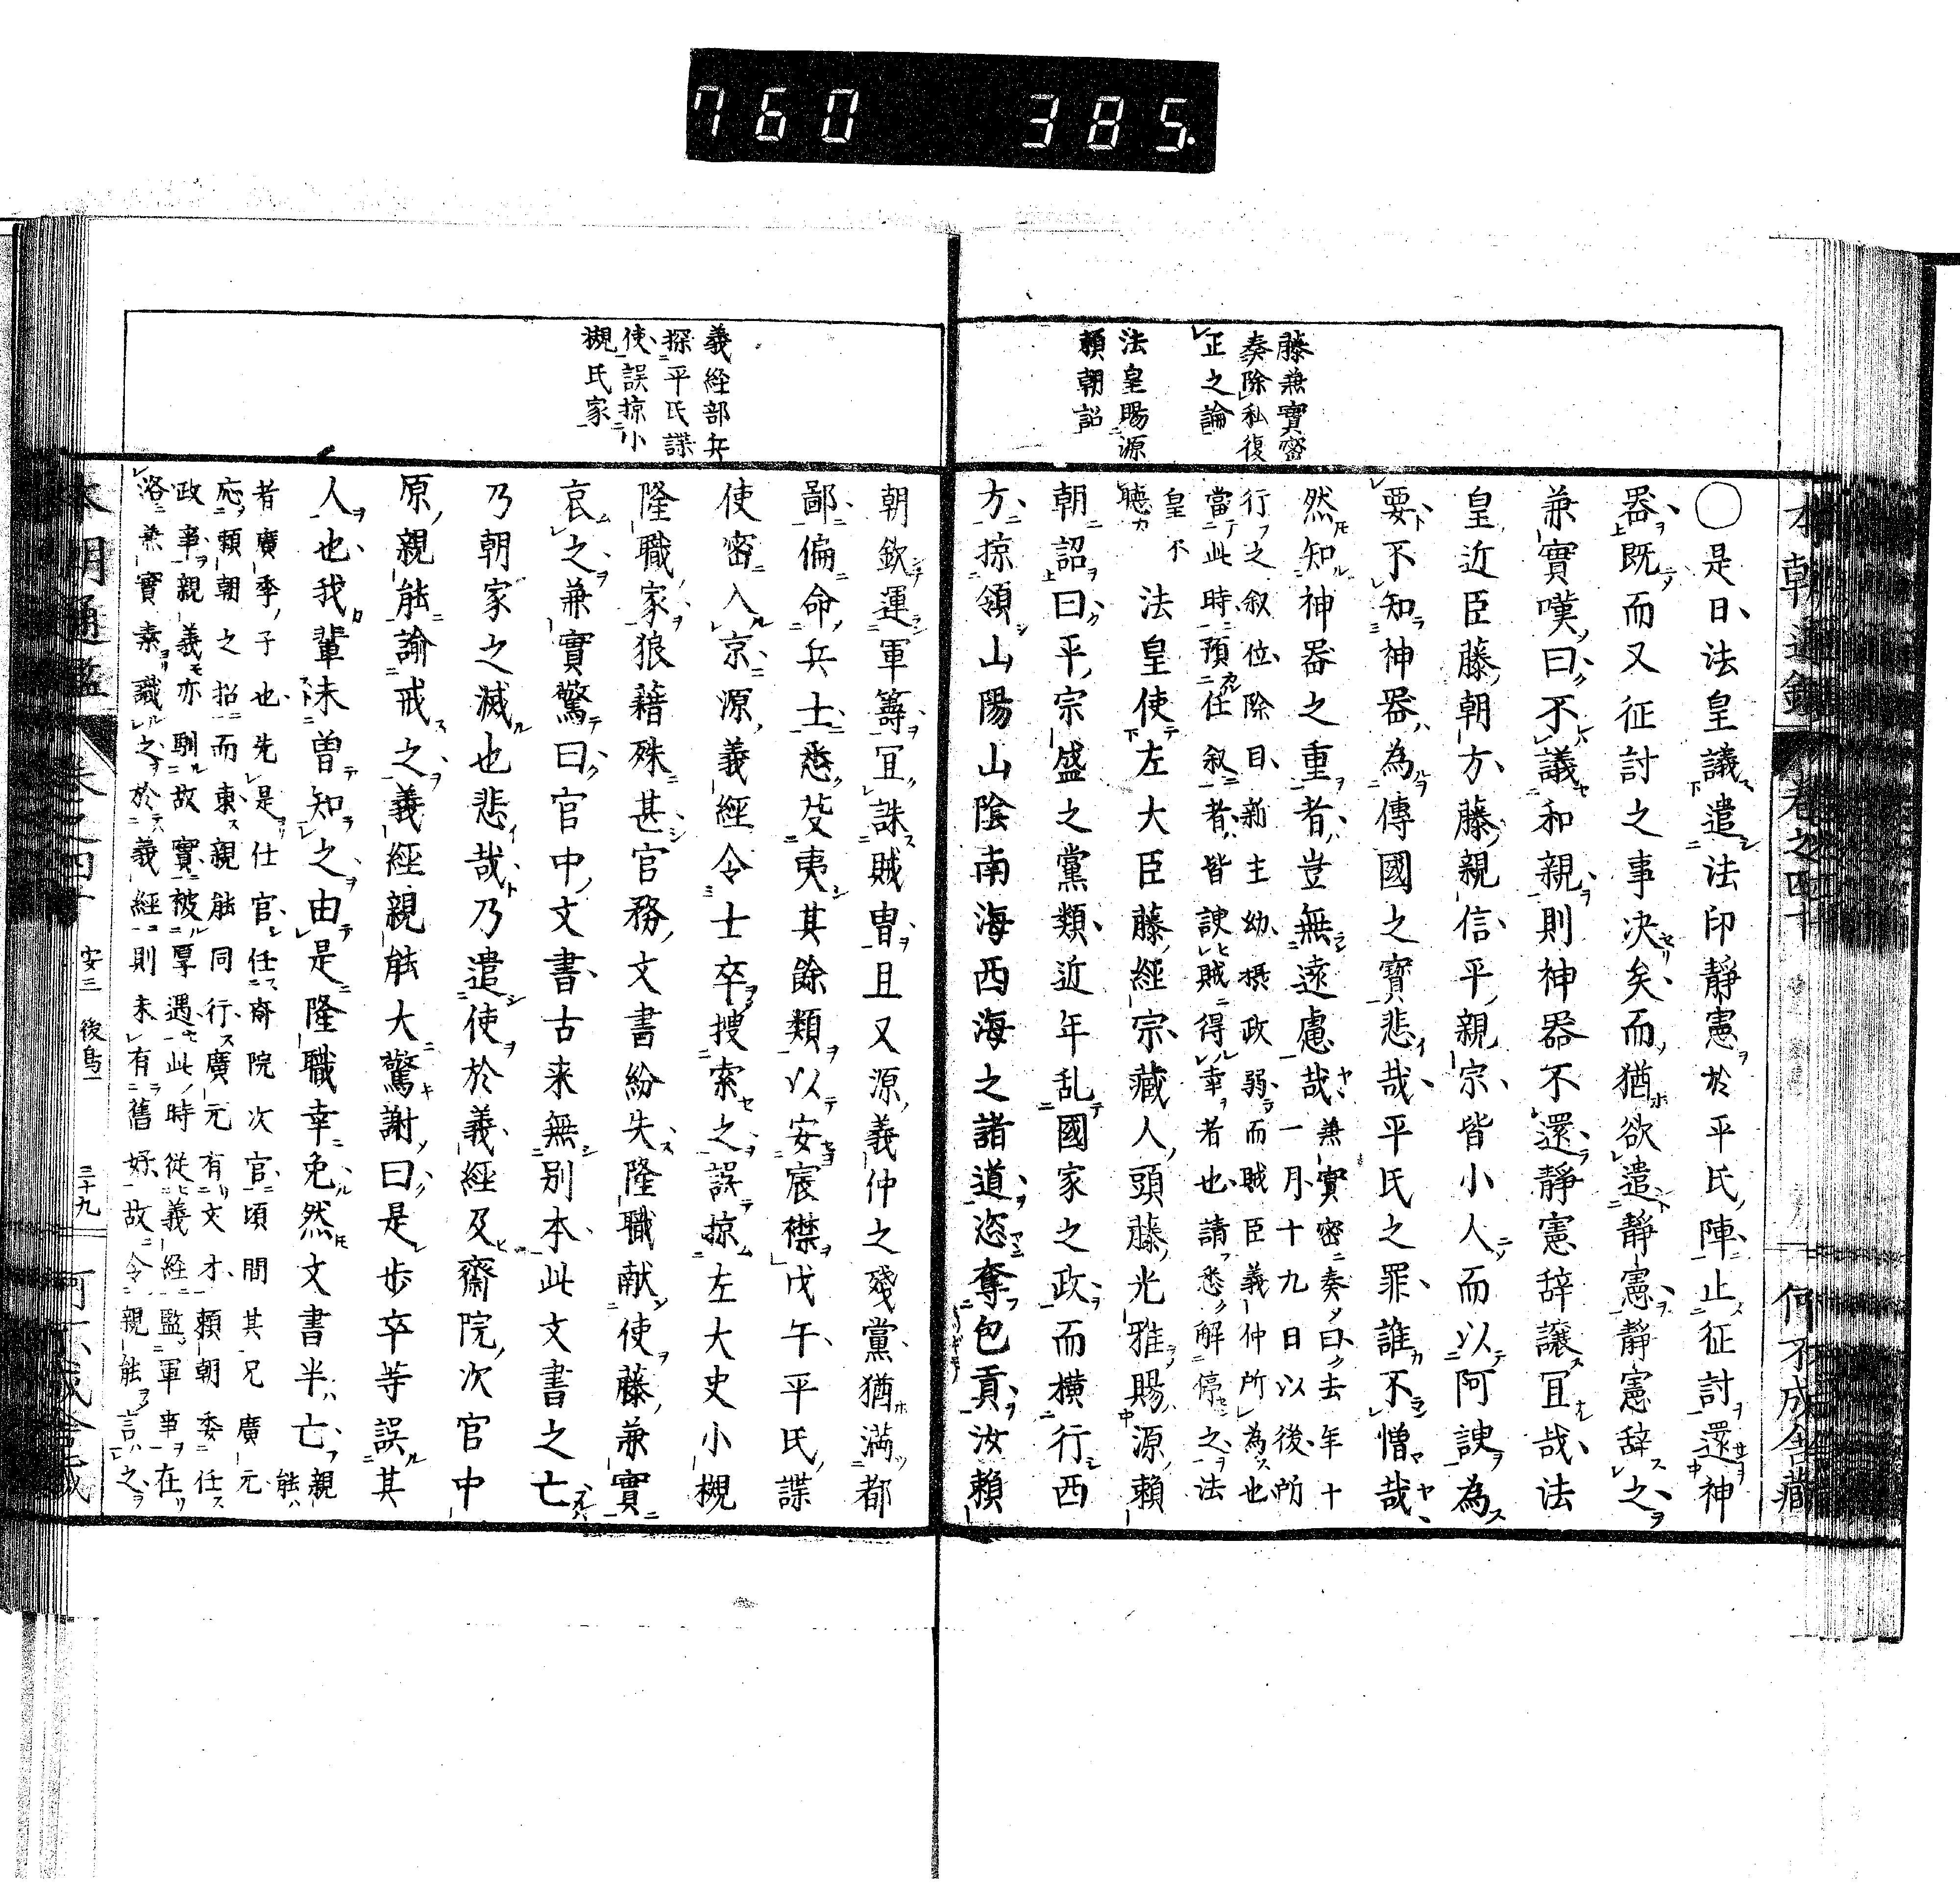 760 385.
藤兼實密
奏除私復
正之論
法皇賜源
頼朝詔
○是日、法皇議遣法印靜憲於平氏陣止征討還神
器、既而又征討之事決矣、而猶欲遣靜憲、靜憲辞之
兼實嘆曰、不議和親則神器不還、靜憲辞讓宜哉、法
皇近臣藤朝方、藤親信、平親宗、皆小人而以阿諛為
要、不知神器為傳國之寶、悲哉、平氏之罪、誰不憎哉、
然知神器之重者、豈無遠慮哉、
兼實密奏曰、去年十
一月十九日以後、所
行之叙位、除目、新主幼、摂政弱、而賊臣義仲所為也
當此時預任叙者、皆諛賊得幸者也、請悉解停之、法
皇不
聴
法皇使左大臣藤經宗、藏人頭藤光雅賜源頼
朝詔曰、平宗盛之黨類、近年乱國家之政、而横行西
方、掠領山陽山陰南海西海之諸道、恣奪包貢、汝頼
義經部兵
探平氏諜
使、誤掠小
槻氏家
朝欽運軍籌、宜誅賊曹、且又源義仲之殘黨、猶満都
鄙、偏命兵士、悉芟夷其餘類、以安宸襟、戊午、平氏諜
使密入京、源義經令士卒捜索之、誤掠左大史小槻
隆職家、狼藉殊甚、官務文書紛失、隆職献使藤兼實
哀之、兼實驚曰、官中文書、古来無別本、此文書之亡
乃朝家之滅也、悲哉、乃遣使於義經及齋院次官中
原親能、諭戒之、義經親能大驚謝曰、是歩卒等誤其
人也、我輩未曽知之、由是隆職幸免、然文書半亡、
親
能
者廣季子也、先是仕官、任齋院次官、頃間其兄廣元
応頼朝之招而東、親能同行、廣元有文才、頼朝委任
政事、親義亦馴故實、被厚遇、此時從義經監軍事在
洛、兼實素識之、於義經則未有舊好、故令親能言之、
本朝通鑑 卷之四十 安三 後鳥一 三十九
本朝通鑑 卷之四十 何不成舎藏